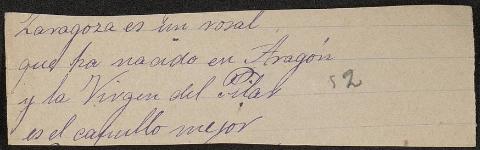 Zaragoza es un rosal
que ha nacido en Aragón
y la Virgen del Pilar
es el capullo mejor
52